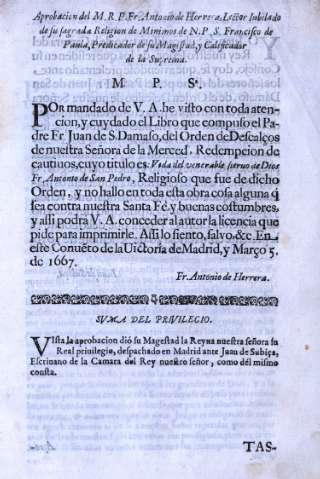 Aprobacion del M. R. P. Fr. Antonio de Herrera, Letor Iubilado
de su sagrada Religion de Minimos de N. P. S. Francisco de
Paula, Predicador de su Magestad, y Calificador
de la Suprema.
M. P. S.
POr mandado de V. A. he visto con toda aten-
cion, y cuydado el Libro que compuso el Pa-
dre Fr. Juan de S. Damaso, del Orden de Descalços
de nuestra Señora de la Merced, Redempcion de
cautiuos, cuyo titulo es: Vida del venerable sieruo de Dios
Fr. Antonio de San Pedro, Religioso que fue de dicho
Orden, y no hallo en toda esta obra cosa alguna q̃
sea contra nuestra Santa Fè, y buenas costumbres,
y assi podrà V. A. conceder al autor la licencia que
pide para imprimirle. Assi lo siento, salvo, &c. En
este Conuẽto de la Uictoria de Madrid, y Março 5.
de 1667.
Fr. Antonio de Herrera.
SUMA DEL PRIVILEGIO.
VIsta la aprobacion diò su Magestad la Reyna nuestra señora su
Real priuilegio, despachado en Madrid ante Juan de Subiça,
Escriuano de la Camara del Rey nuestro señor, como dèl mismo
consta.
TAS-